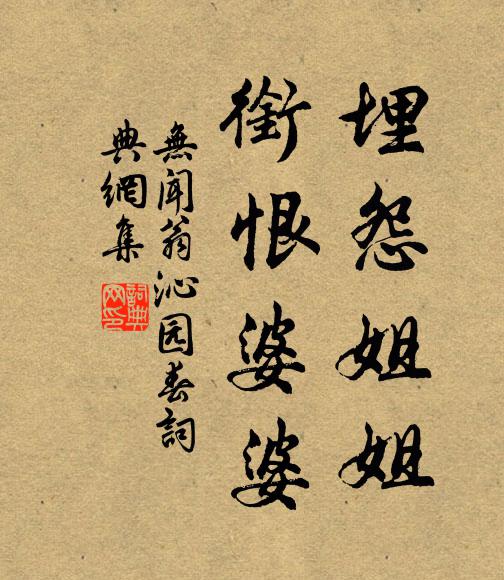 埋怨姐姐
銜恨婆婆
無聞翁沁园春詞
典網集
詞典網印